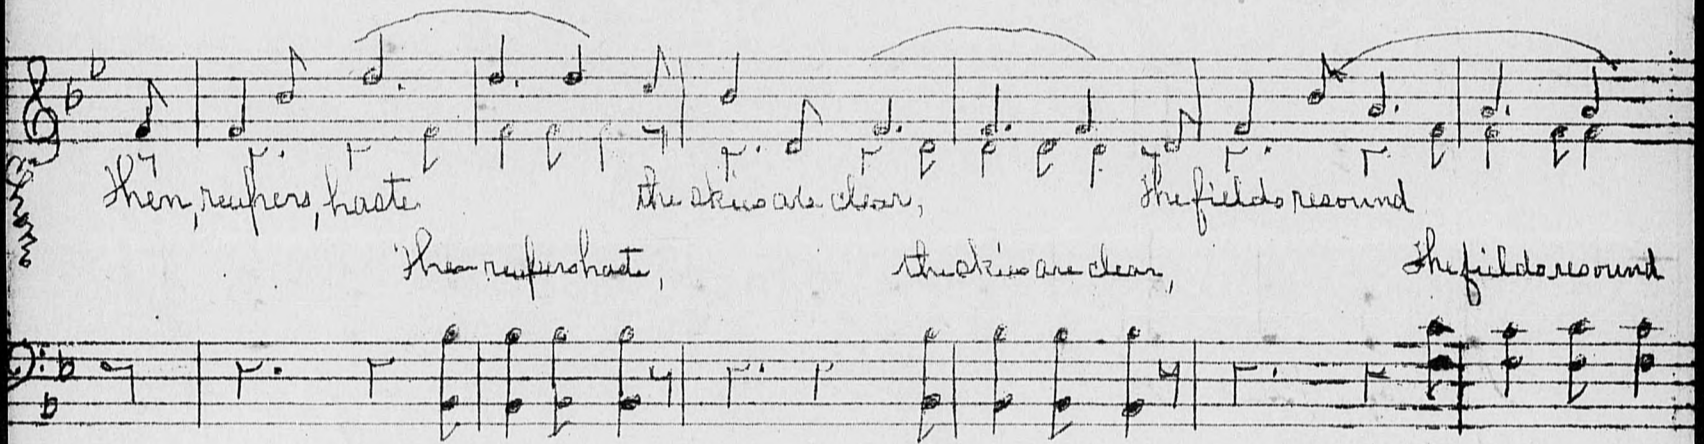 Then, reapers, haste the skies are clear, The fields resound
Then reapers haste, the skies are clear, The fields resound